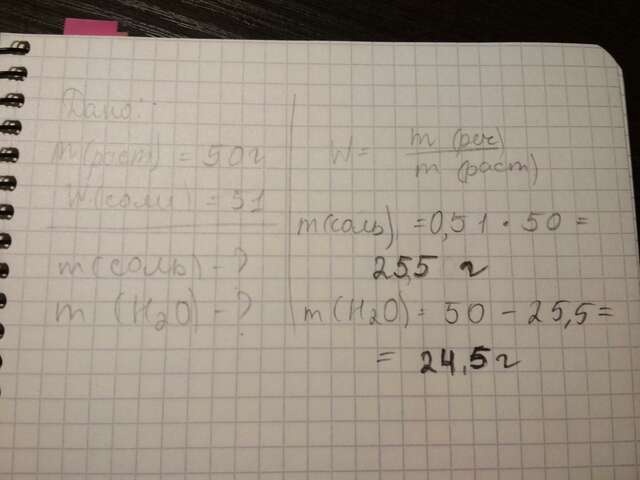 Дано:
m(раст) = 50г
W(соли) = 51
m(соль) - ?
m (H₂O) - ?
W = m (реч) / m (раст)
m(соль) = 0,51 · 50 =
25,5 г
m(H₂O) = 50 - 25,5 =
= 24,5г